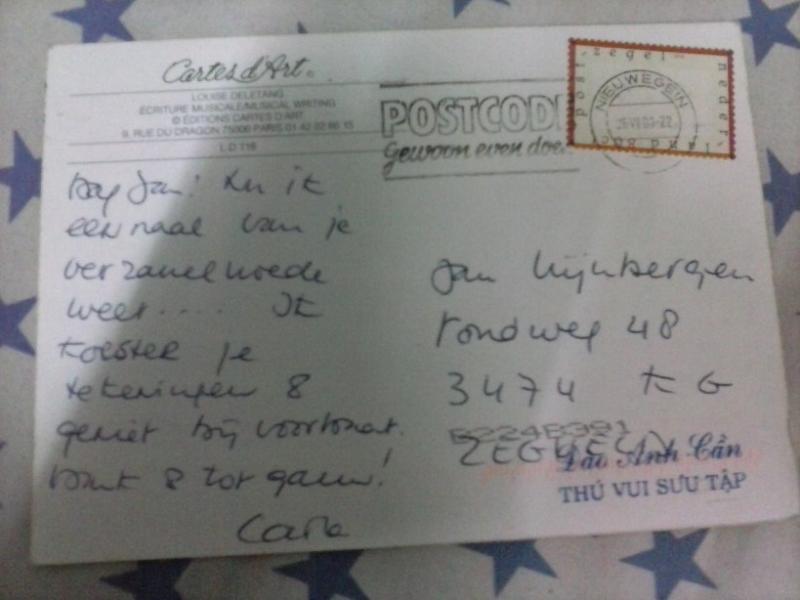 Cartes d'Art
LOUISE DELETANG
ÉCRITURE MUSICALE/MUSICAL WRITING
© ÉDITIONS CARTES D'ART
9, RUE DU DRAGON 75006 PARIS 01 42 22 86 15
L D 116
post zegel neder land 80
NIEUWEGEIN
POSTCODE
gewoon even doen
Dag Jan! Nu ik
eenmaal van je
verzamelwoede
weet .... Ik
koester je
tekeningen &
geniet bij voorbaat.
Dank & tot gauw!
Carla
Jan Wijnbergen
Rondweg 48
3474 KG
ZEGVELD
Đào Anh Cần
THÚ VUI SƯU TẬP